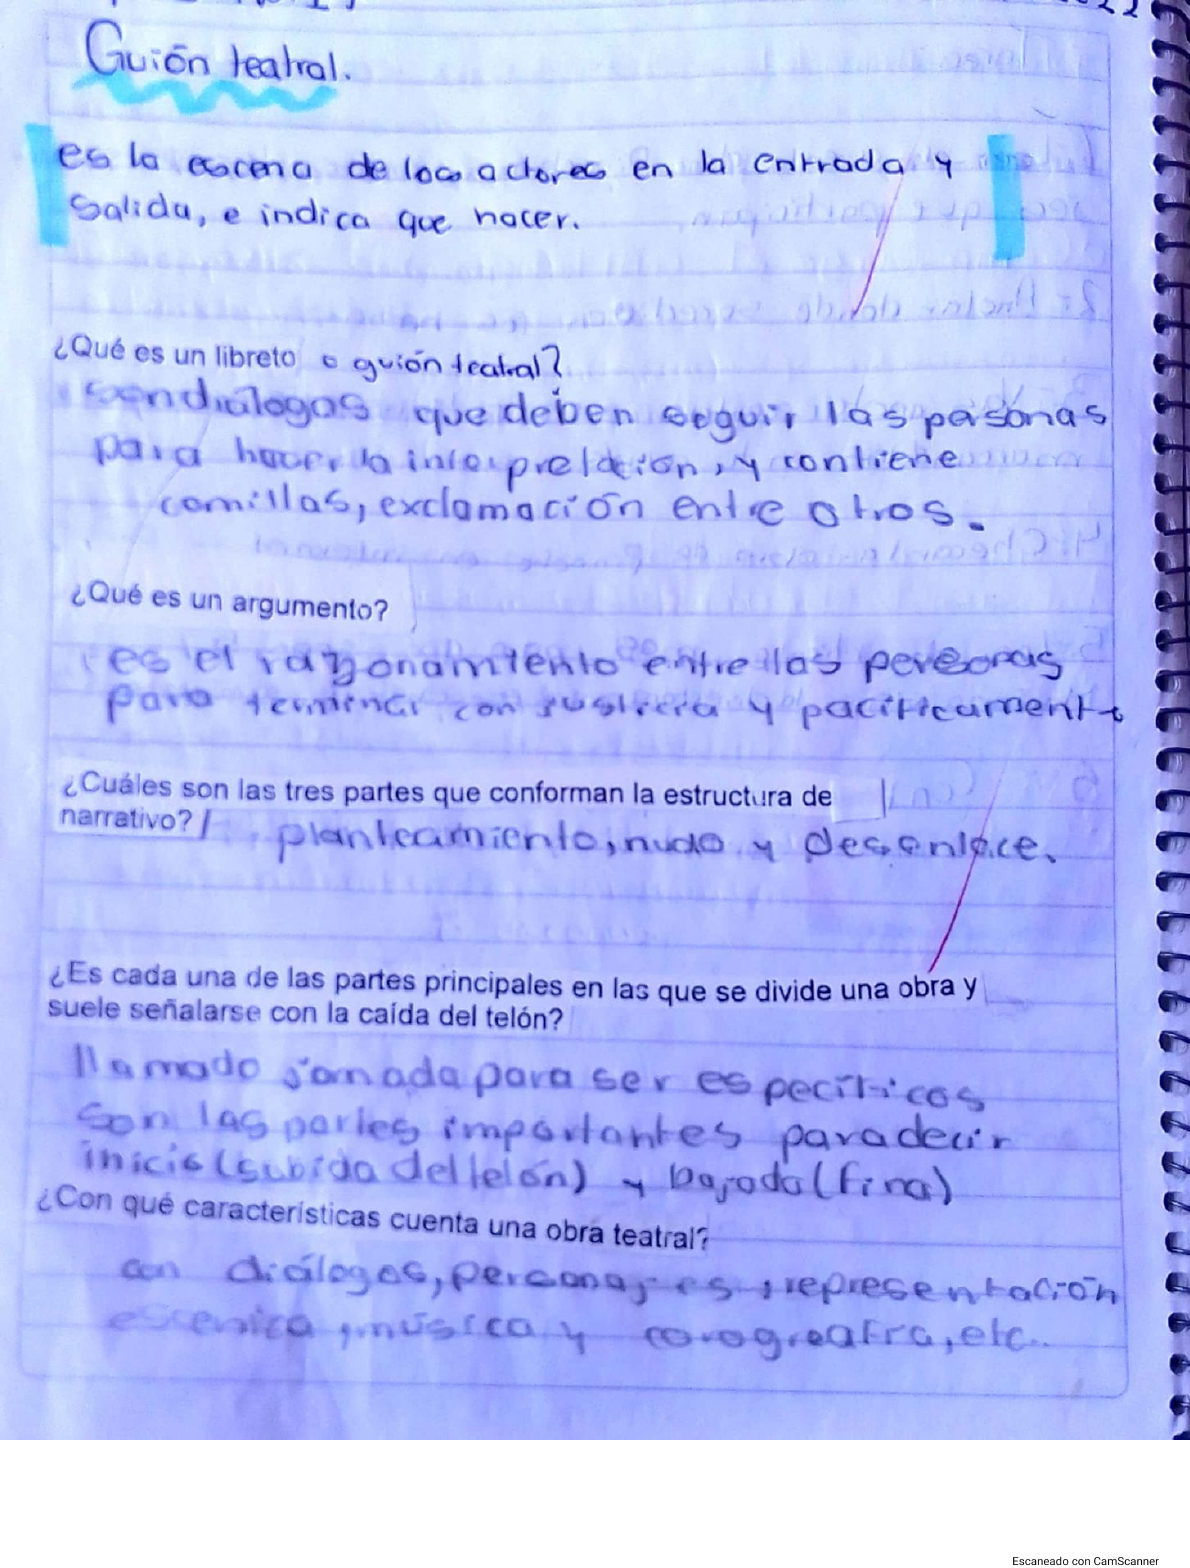 Guión teatral.
es la escena de los actores en la entrada y
salida, e indica que hacer.
¿Qué es un libreto o guión teatral?
son dialogos que deben seguir las personas
para hacer la interpretación, y contiene
comillas, exclamación entre otros.
¿Qué es un argumento?
es el razonamiento entre las personas
para terminar con justicia y pacificamente
¿Cuáles son las tres partes que conforman la estructura de
narrativo?
planteamiento, nudo y desenlace.
¿Es cada una de las partes principales en las que se divide una obra y
suele señalarse con la caída del telón?
llamado jornada para ser especificos
son las partes importantes para decir
inicio (subida del telón) y bajada (final)
¿Con qué características cuenta una obra teatral?
con diálogos, personajes, representación
escenica, música y corogreafra, etc.
Escaneado con CamScanner